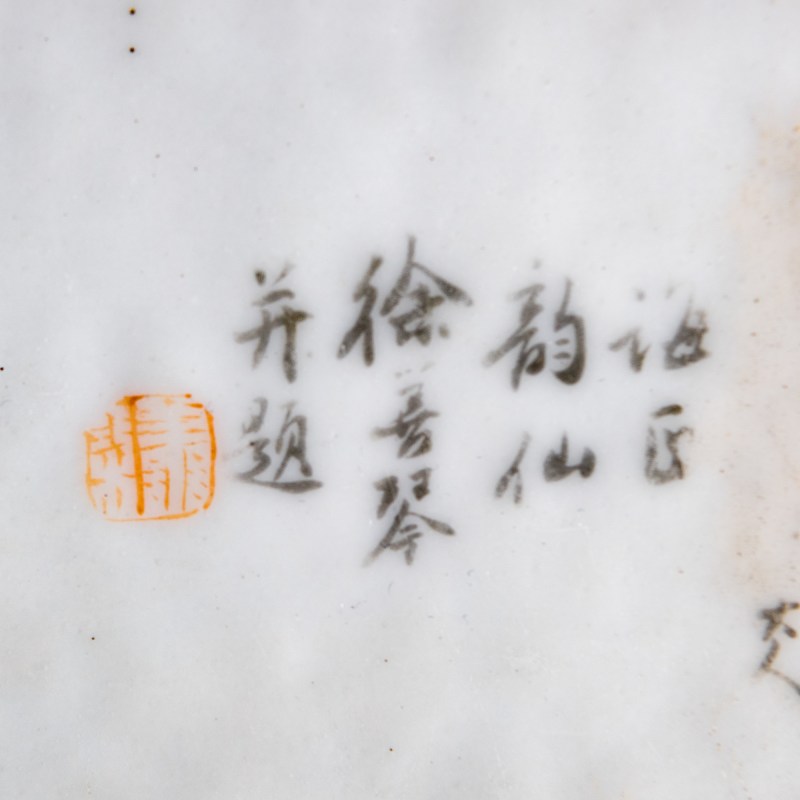 诲正
韵仙
徐善琴
并题